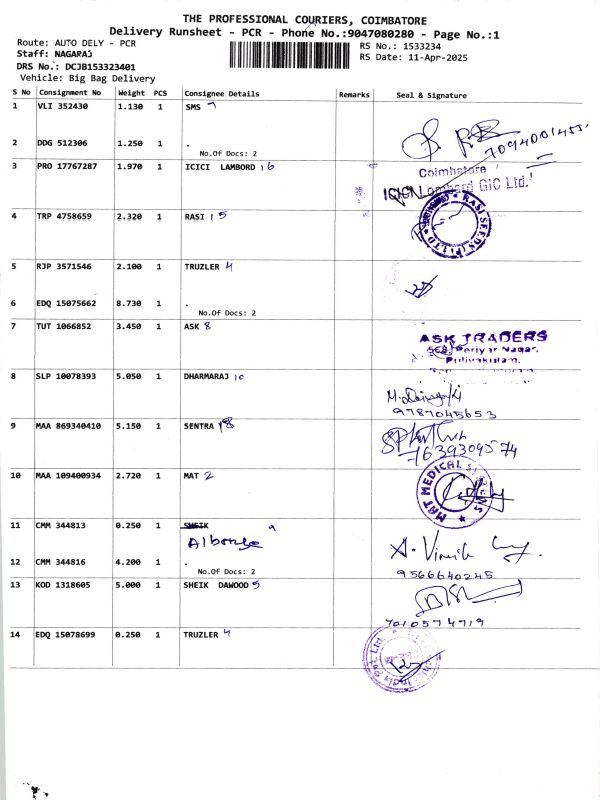 THE PROFESSIONAL COURIERS, COIMBATORE
Delivery Runsheet - PCR - Phone No.:9047080280 - Page No.:1
Route: AUTO DELY - PCR
Staff: NAGARAJ
DRS No.: DCJB153323401
Vehicle: Big Bag Delivery
RS No.: 1533234
RS Date: 11-Apr-2025
S No Consignment No Weight PCS Consignee Details Remarks Seal & Signature
1 VLI 352430 1.130 1 SMS
2 DDG 512306 1.250 1 .
No.Of Docs: 2
7094001455
3 PRO 17767287 1.970 1 ICICI LAMBORD 16
Coimbatore
ICICI Lombard GIC Ltd.
4 TRP 4758659 2.320 1 RASI 15
RASI SEEDS (P) LTD
5 RJP 3571546 2.100 1 TRUZLER 4
6 EDQ 15075662 8.730 1 .
No.Of Docs: 2
7 TUT 1066852 3.450 1 ASK 8
ASK TRADERS
568, Periyar Nagar,
Pulivakulam,
8 SLP 10078393 5.050 1 DHARMARAJ 10
9787045653
9 MAA 869340410 5.150 1 SENTRA 18
7639309574
10 MAA 109400934 2.720 1 MAT 2
MAT MEDICAL SYSTEMS
11 CMM 344813 0.250 1 SHEIK 9
Albonse
12 CMM 344816 4.200 1 .
No.Of Docs: 2
9566640245
13 KOD 1318605 5.000 1 SHEIK DAWOOD 5
7010574719
14 EDQ 15078699 0.250 1 TRUZLER 4
India Pvt. Ltd